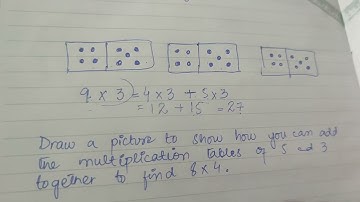 9 × 3 = 4 × 3 + 5 × 3
= 12 + 15 = 27
Draw a picture to show how you can add
the multiplication tables of 5 and 3
together to find 8 × 4.